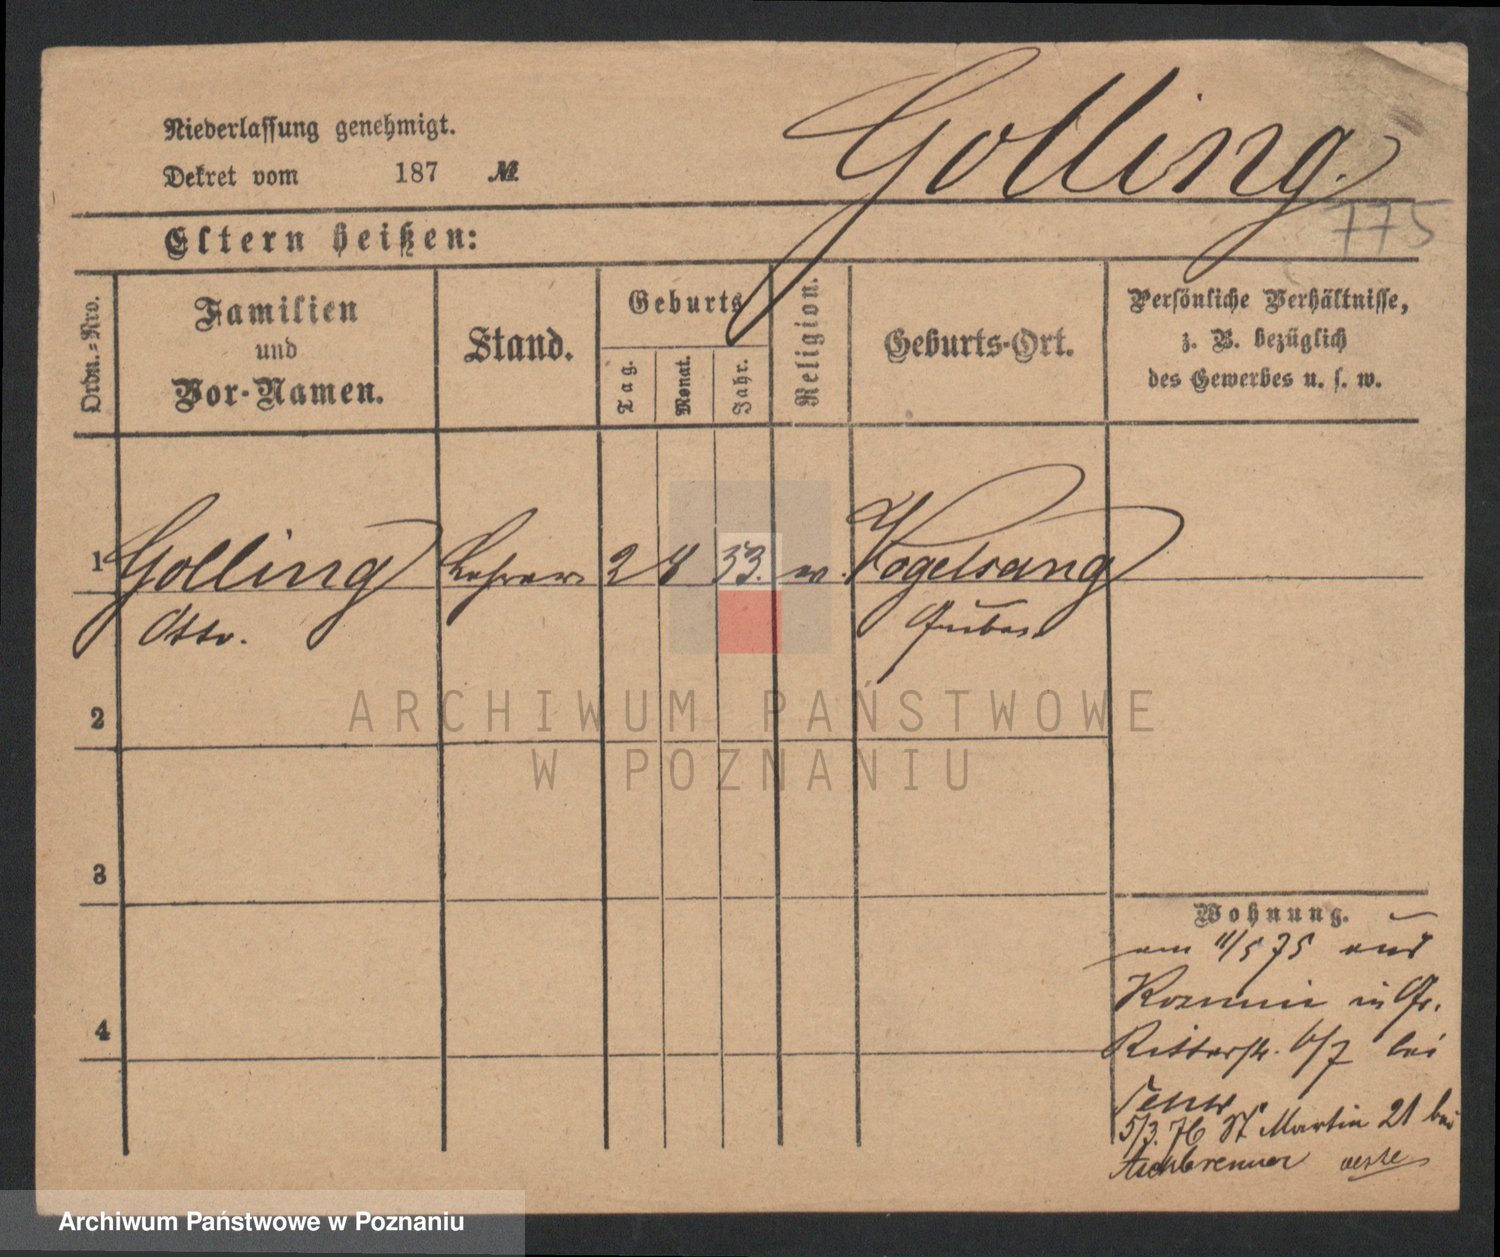 Niederlassung genehmigt.
Dekret vom 187 №
Golling.
775
Eltern heißen:
Ordn.-Nro.
Familien
und
Vor-Namen.
Stand.
Geburts
Tag.
Monat.
Jahr.
Religion.
Geburts-Ort.
Persönliche Verhältnisse,
z. B. bezüglich
des Gewerbes u. s. w.
1 Golling Lehrer 2 8 53. ev. Vogelsang
Otto. Guben
2
ARCHIWUM PAŃSTWOWE
W POZNANIU
3
4
Wohnung.
am 11/5 75 aus
Kozmin in Gr.
Ritterstr. 6/7 bei
5/3. 76 St Martin 21 bei
Aschbrenner
Archiwum Państwowe w Poznaniu